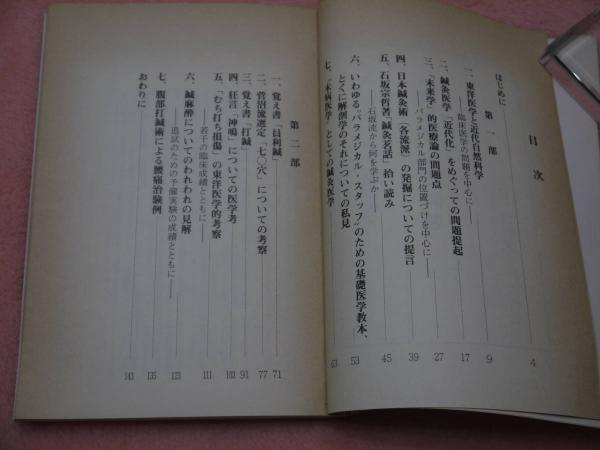 目次
はじめに 4
第一部
一、東洋医学と近代自然科学 9
——臨床医学の問題を中心に——
二、鍼灸医学「近代化」をめぐっての問題提起 17
三、「未来学」的医療論の問題点 27
——パラメジカル部門の位置づけを中心に——
四、日本鍼灸術（各流派）の発掘についての提言 39
五、石坂宗哲著「鍼灸茗話」拾い読み 45
——石坂流から何を学ぶか——
六、いわゆる“パラメジカル・スタッフ”のための基礎医学教本、
とくに解剖学のそれについての私見 53
七、「未病医学」としての鍼灸医学 63
第二部
一、覚え書「員利鍼」 71
二、菅沼流選定「七〇穴」についての考察 77
三、覚え書「打鍼」 91
四、狂言「神鳴」についての医学考 103
五、「むち打ち損傷」の東洋医学的考察 111
——若干の臨床成績とともに——
六、鍼麻酔についてのわれわれの見解 123
——追試のための予備実験の成績とともに——
七、腹部打鍼術による腰痛治験例 135
おわりに 143